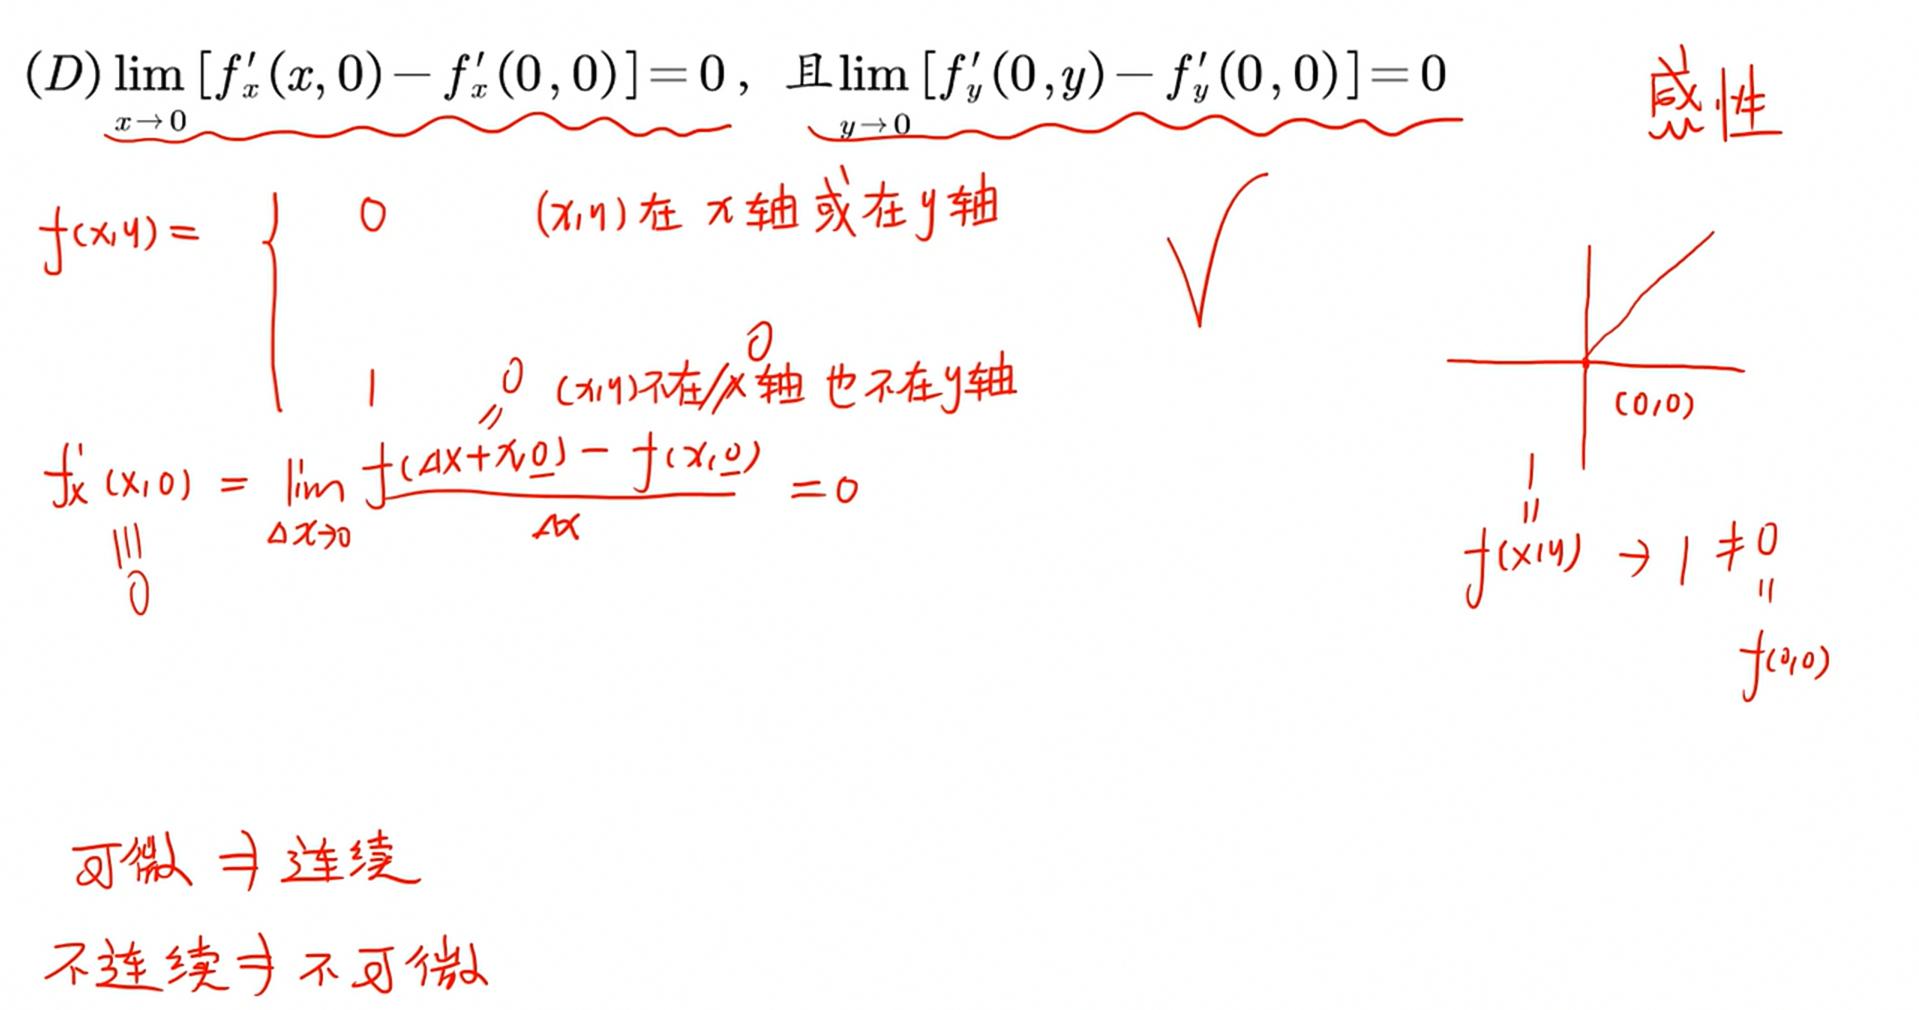 (D) lim_{x→0} [f'_x(x,0) − f'_x(0,0)] = 0, 且 lim_{y→0} [f'_y(0,y) − f'_y(0,0)] = 0
感性
f(x,y) = {
0 (x,y)在 x轴 或在 y轴
0
1 (x,y)不在x轴 也不在y轴
0
=
f'_x(x,0) = lim_{Δx→0} (f(Δx+x,0) − f(x,0)) / Δx = 0
≡
0
(0,0)
1
=
f(x,y) → 1 ≠ 0
=
f(0,0)
可微 ⇒ 连续
不连续 ⇒ 不可微